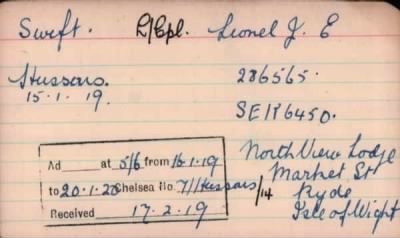 Swift. L/Cpl. Lionel J. E
Hussars. 286565.
15.1.19.
SE1R6450.
Ad at 5/6 from 16.1.19
to 20.1.20 Chelsea No. 7/Hussars/14
Received 17.2.19
North View Lodge
Market St
Ryde
Isle of Wight